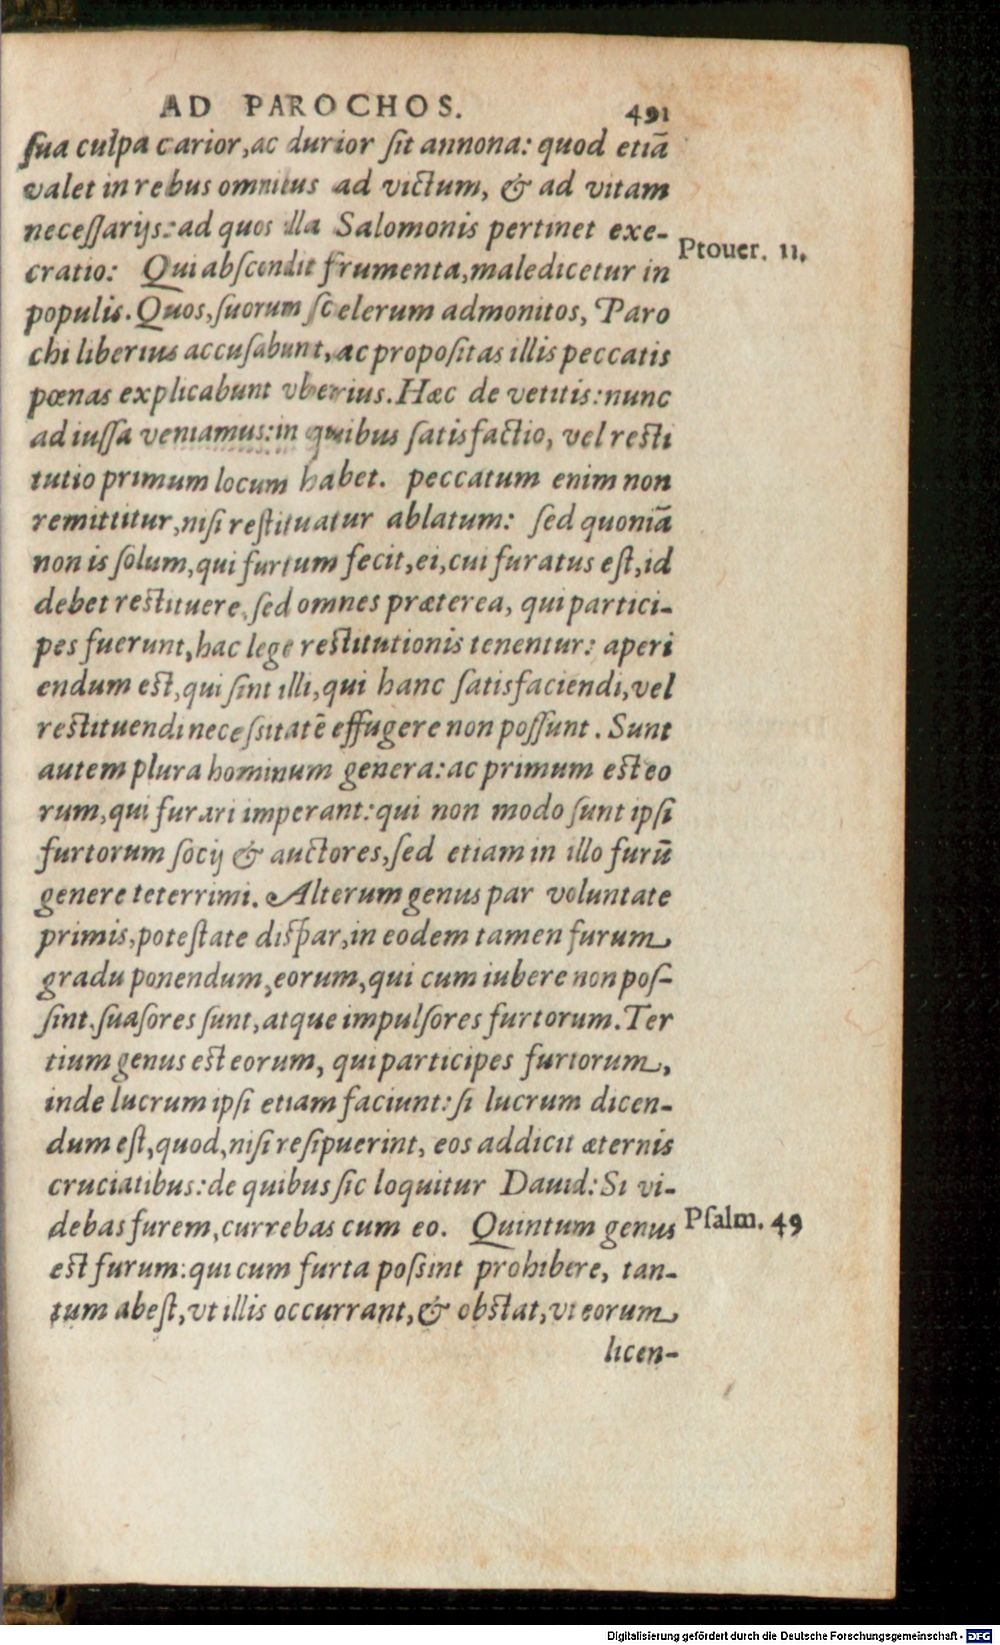 AD PAROCHOS. 491
ſua culpa carior, ac durior ſit annona: quod etiā
valet in rebus omnibus ad victum, & ad vitam
neceſſarijs: ad quos illa Salomonis pertinet exe-
Prouer. 11.
cratio: Qui abſcondit frumenta, maledicetur in
populis. Quos, ſuorum ſcelerum admonitos, Paro
chi liberius accuſabunt, ac propoſitas illis peccatis
pœnas explicabunt vberius. Hæc de vetitis: nunc
ad iuſſa veniamus: in quibus ſatisfactio, vel reſti
tutio primum locum habet. peccatum enim non
remittitur, niſi reſtituatur ablatum: ſed quoniā
non is ſolum, qui furtum fecit, ei, cui furatus eſt, id
debet reſtituere, ſed omnes præterea, qui partici-
pes fuerunt, hac lege reſtitutionis tenentur: aperi
endum eſt, qui ſint illi, qui hanc ſatisfaciendi, vel
reſtituendi neceſsitatē effugere non poſſunt. Sunt
autem plura hominum genera: ac primum eſt eo
rum, qui furari imperant: qui non modo ſunt ipſi
furtorum ſocij & auctores, ſed etiam in illo furū
genere teterrimi. Alterum genus par voluntate
primis, poteſtate diſpar, in eodem tamen furum
gradu ponendum, eorum, qui cum iubere non poſ-
ſint, ſuaſores ſunt, atque impulſores furtorum. Ter
tium genus eſt eorum, qui participes furtorum,
inde lucrum ipſi etiam faciunt: ſi lucrum dicen-
dum eſt, quod, niſi reſipuerint, eos addicit æternis
cruciatibus: de quibus ſic loquitur Dauid: Si vi-
debas furem, currebas cum eo. Quintum genus
Pſalm. 49
eſt furum: qui cum furta poſsint prohibere, tan-
tum abeſt, vt illis occurrant, & obſtat, vt eorum
licen-
Digitalisierung gefördert durch die Deutsche Forschungsgemeinschaft - DFG